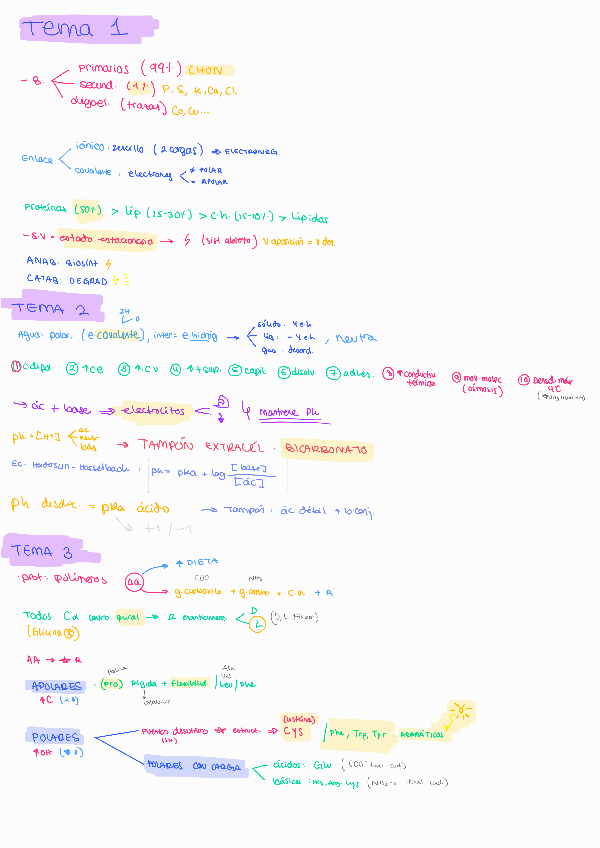 Tema 1
primarios (99%) CHON
- B. secund. (1%) P, S, K, Ca, Cl
oligoel. (trazas) Co, Cu...
iónico: sencillo (2 cargas) → ELECTRONEG.
Enlace
covalente: electroneg ≠ POLAR
= APOLAR
Proteínas (50%) > Lip (25-30%) > C.h. (15-20%) > Lípidos
- S.V - estado estacionario → (sist abierto) V aposición = V
ANAB. BIOSINT
CATAB. DEGRAD
TEMA 2
Agua: polar. (e.covalente), inter = e.hidróg → sólido: 4 e.h
liq: - 4 e.h , neutra
gas: desord.
① c.dipol ② ↑ce ③ ↑cv ④ ↑t.sup. ⑤ capil ⑥ disolv ⑦ adhes. ⑧ ↑conductiv térmica ⑨ mov. molec (ósmosis) ⑩ Densid. máx 4ºC
→ ác + base → electrolitos mantiene ph
ph = [H+] ac
neutr
bás → TAMPÓN EXTRACÉL. BICARBONATO
Ec. Henderson-Hasselbach: ph = pka + log [base]
[ác]
ph disol. = pka ácido → Tampón: ác débil + b.conj.
+1 / -1
TEMA 3
↑ DIETA
· prot: polímeros aa COO NH3
g.carboxilo + g.amino + Cα + R
Todos Cα centro quiral → 2 enantiómeros D
L
(Glicina
AA → R
APOLARES · (Pro) Rígida + flexibilid / Leu / Phe
↑C
(cisteína)
puentes disulfuro estruct. ⇒ CYS / Phe, Trp, Tyr - AROMÁTICOS
(SH)
POLARES
↑OH
POLARES CON CARGA
ácidos: Glu
básicos: His, Arg, Lys